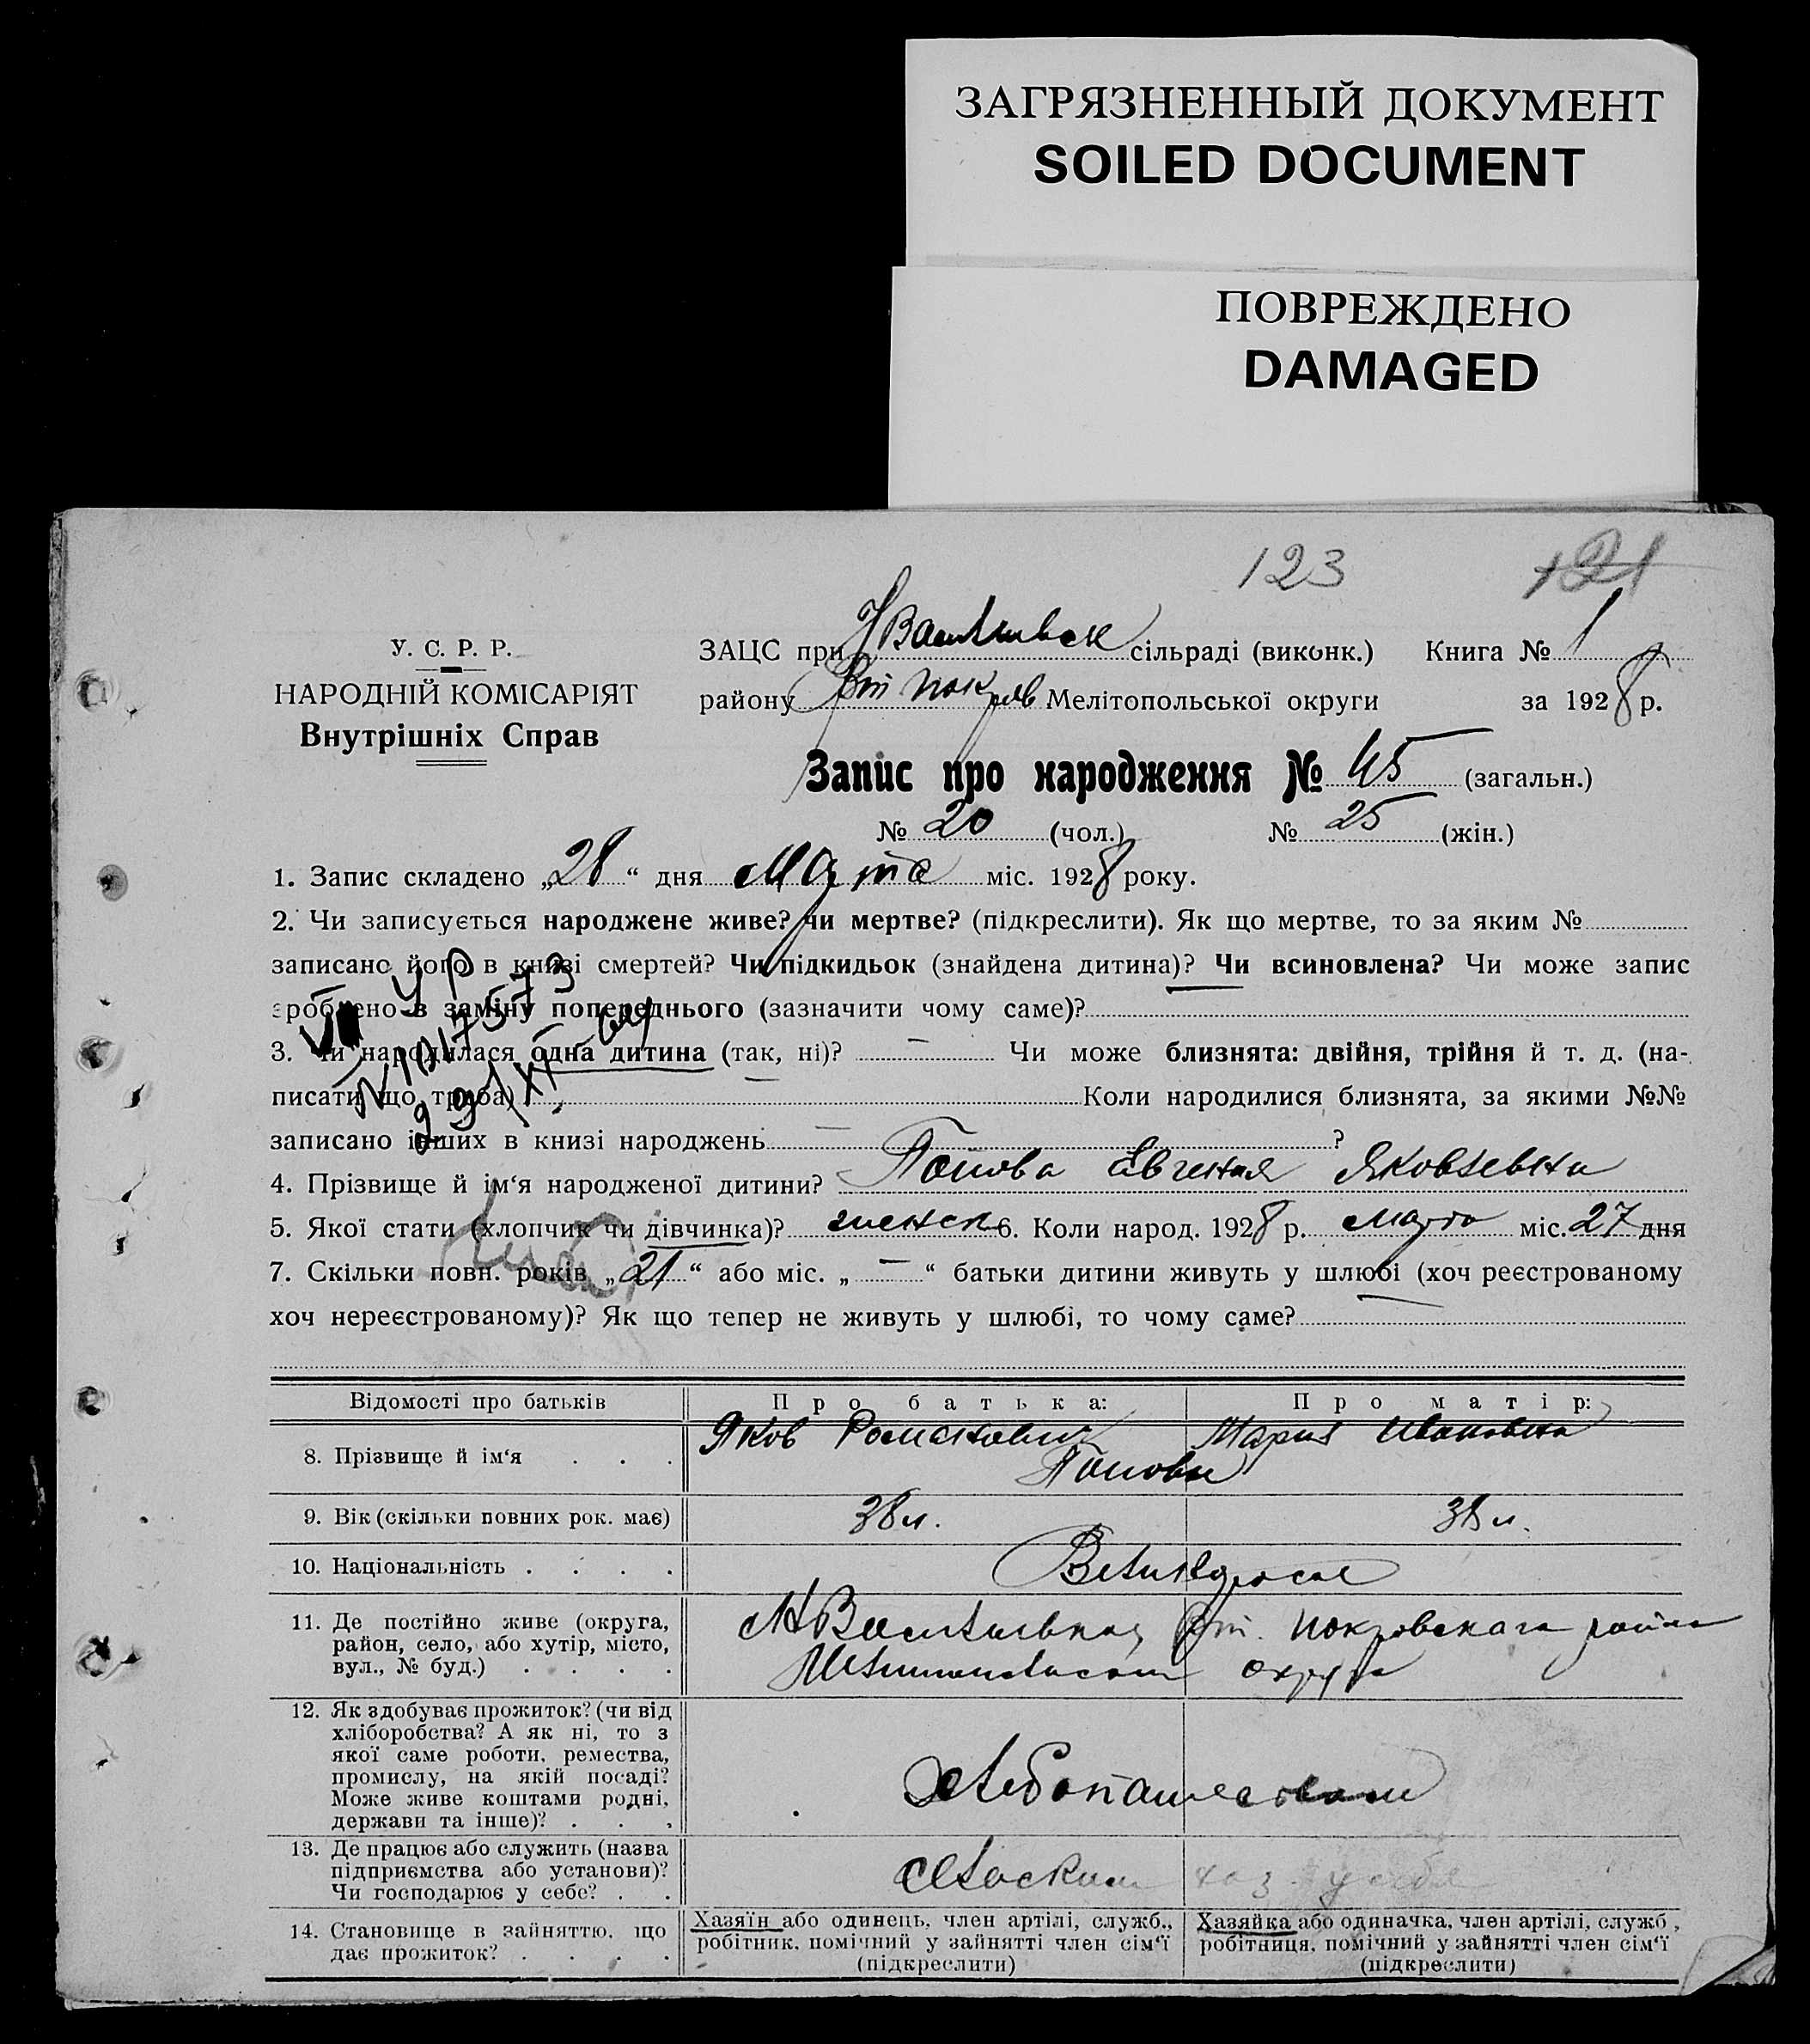 ЗАГРЯЗНЕННЫЙ ДОКУМЕНТ
SOILED DOCUMENT
ПОВРЕЖДЕНО
DAMAGED
123 121
У. С. Р. Р.
НАРОДНІЙ КОМІСАРІЯТ
Внутрішніх Справ
ЗАЦС при НВасильевск сільраді (виконк.) Книга № 1
району Вт Покров Мелітопольської округи за 1928 р.
Запис про народження № 45 (загальн.)
№ 20 (чол.) № 25 (жін.)
1. Запис складено „28“ дня Марта міс. 1928 року.
2. Чи записується народжене живе? чи мертве? (підкреслити). Як що мертве, то за яким №
записано його в книзі смертей? Чи підкидьок (знайдена дитина)? Чи всиновлена? Чи може запис
зроблено в заміну попереднього (зазначити чому саме)?
3. Чи народилася одна дитина (так, ні)? — Чи може близнята: двійня, трійня й т. д. (на-
писати що треба) — Коли народилися близнята, за якими №№
записано інших в книзі народжень — ?
4. Прізвище й ім‘я народженої дитини? Попова Евгения Яковлевна
5. Якої стати (хлопчик чи дівчинка)? женск 6. Коли народ. 1928 р. Марта міс. 27 дня
7. Скільки повн. років „21“ або міс. „—“ батьки дитини живуть у шлюбі (хоч реєстрованому
хоч нереєстрованому)? Як що тепер не живуть у шлюбі, то чому саме?
Відомості про батьків Про батька: Про матір:
8. Прізвище й ім‘я . . . Яков Романович Мария Ивановна
Поповы
9. Вік (скільки повних рок. має) 38 л. 38 л.
10. Національність . . . . Великоросы
11. Де постійно живе (округа,
район, село, або хутір, місто,
вул., № буд.) . . . .
Вт. Покровскага района
округа
12. Як здобуває прожиток? (чи від
хліборобства? А як ні, то з
якої саме роботи, ремества,
промислу, на якій посаді?
Може живе коштами родні,
держави та інше)? . . .
Хлебопашеством
13. Де працює або служить (назва
підприємства або установи)?
Чи господарює у себе? . .
хоз. у себя
14. Становище в зайняттю, що
дає прожиток? . . . .
Хазяїн або одинець, член артілі, служб.,
робітник, помічний у зайнятті член сім‘ї
(підкреслити)
Хазяйка або одиначка, член артілі, служб,
робітниця, помічний у зайнятті член сім‘ї
(підкреслити)